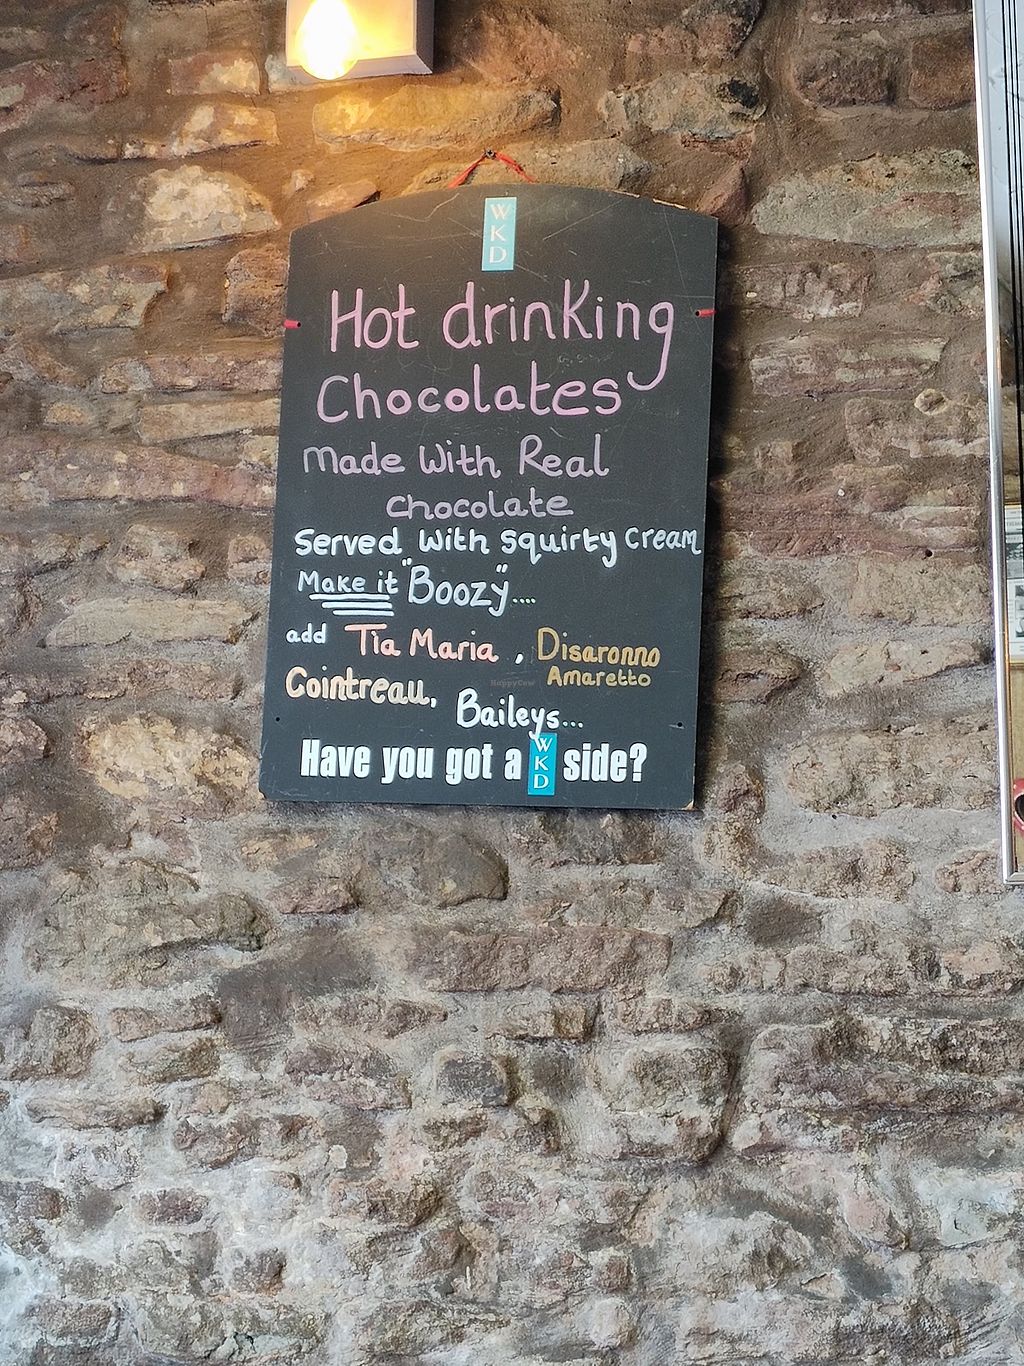 WKD
Hot drinking
Chocolates
Made With Real
chocolate
Served With squirty Cream
Make it "Boozy"....
add Tia Maria, Disaronno
Amaretto
Cointreau, Baileys...
Have you got a WKD side?
HappyCow